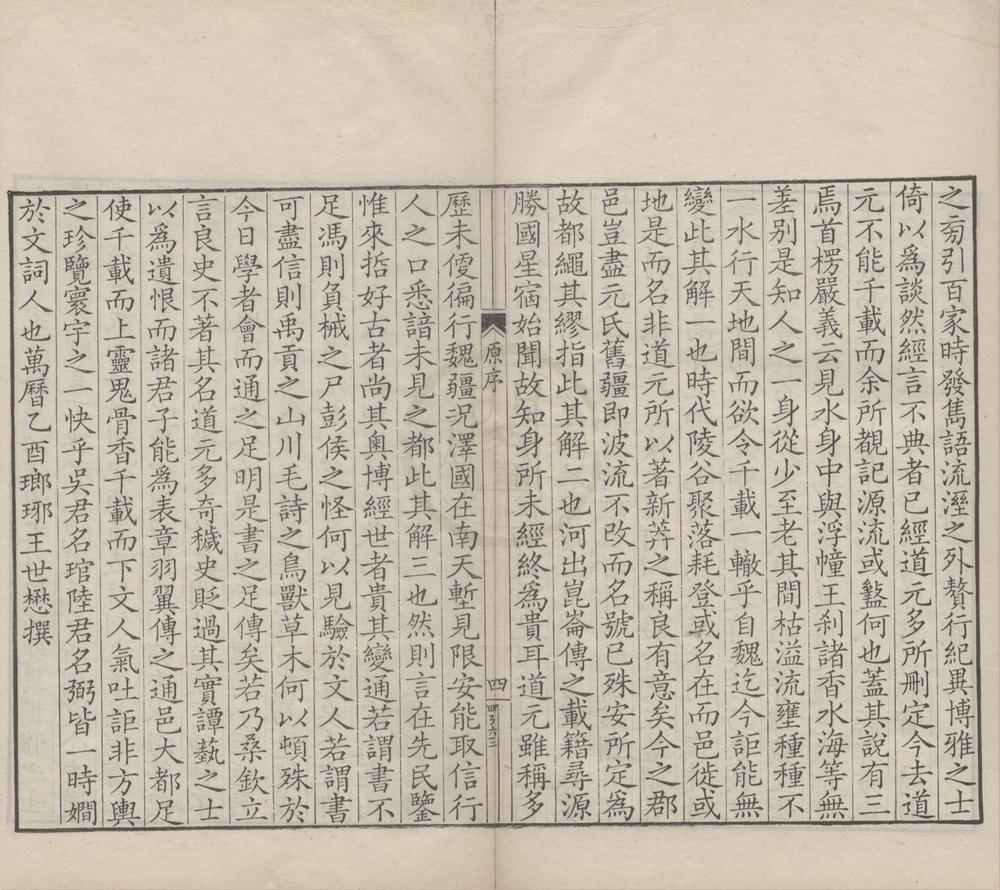 之旁引百家時發雋語流溼之外贅行紀異博雅之士
倚以為談然經言不典者已經道元多所刪定今去道
元不能千載而余所覩記源流或盭何也蓋其說有三
焉首楞嚴義云見水身中與浮幢王刹諸香水海等無
差别是知人之一身從少至老其間枯溢流壅種種不
一水行天地間而欲令千載一轍乎自魏迄今詎能無
變此其解一也時代陵谷聚落耗登或名在而邑徙或
地是而名非道元所以著新莽之稱良有意矣今之郡
邑豈盡元氏舊疆即波流不改而名號已殊安所定為
故都繩其繆指此其解二也河出崑崙傳之載籍尋源
勝國星宿始聞故知身所未經終為貴耳道元雖稱多
原序
四
歷未儍徧行魏疆况澤國在南天塹見限安能取信行
人之口悉諳未見之都此其解三也然則言在先民鑒
惟來哲好古者尚其奥博經世者貴其變通若謂書不
足馮則負械之尸彭侯之怪何以見驗於文人若謂書
可盡信則禹貢之山川毛詩之鳥獸草木何以頓殊於
今日學者會而通之足明是書之足傳矣若乃桑欽立
言良史不著其名道元多奇穢史貶過其實譚埶之士
以為遺恨而諸君子能為表章羽翼傳之通邑大都足
使千載而上靈鬼骨香千載而下文人氣吐詎非方輿
之珍覽寰宇之一快乎吳君名琯陸君名弼皆一時嫺
於文詞人也萬曆乙酉瑯琊王世懋撰